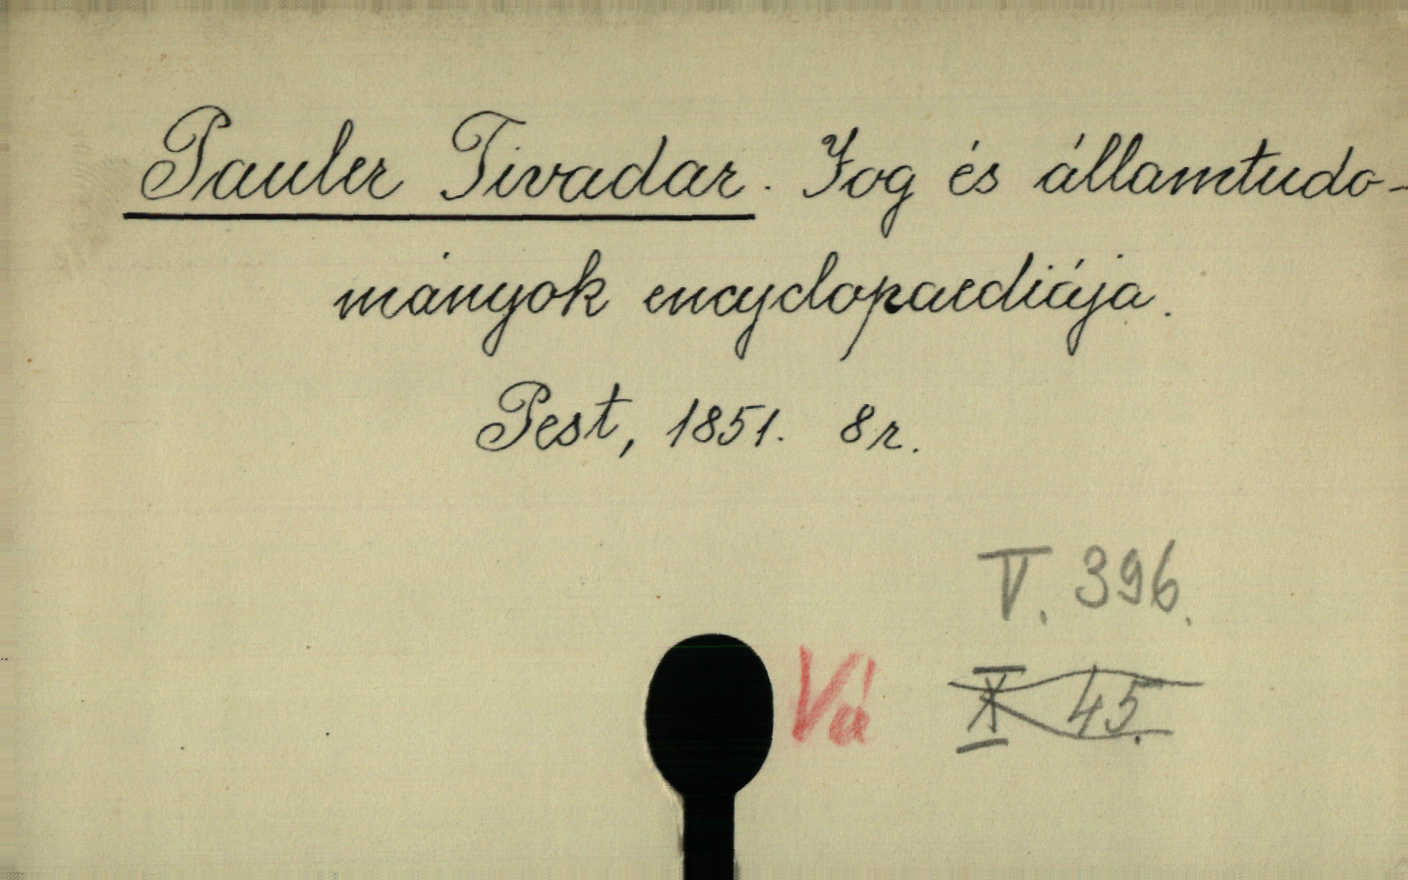 Pauler Tivadar. Jog és államtudo-
mányok encyclopaediája.
Pest, 1851. 8r.
V. 396.
Vá
X 45.